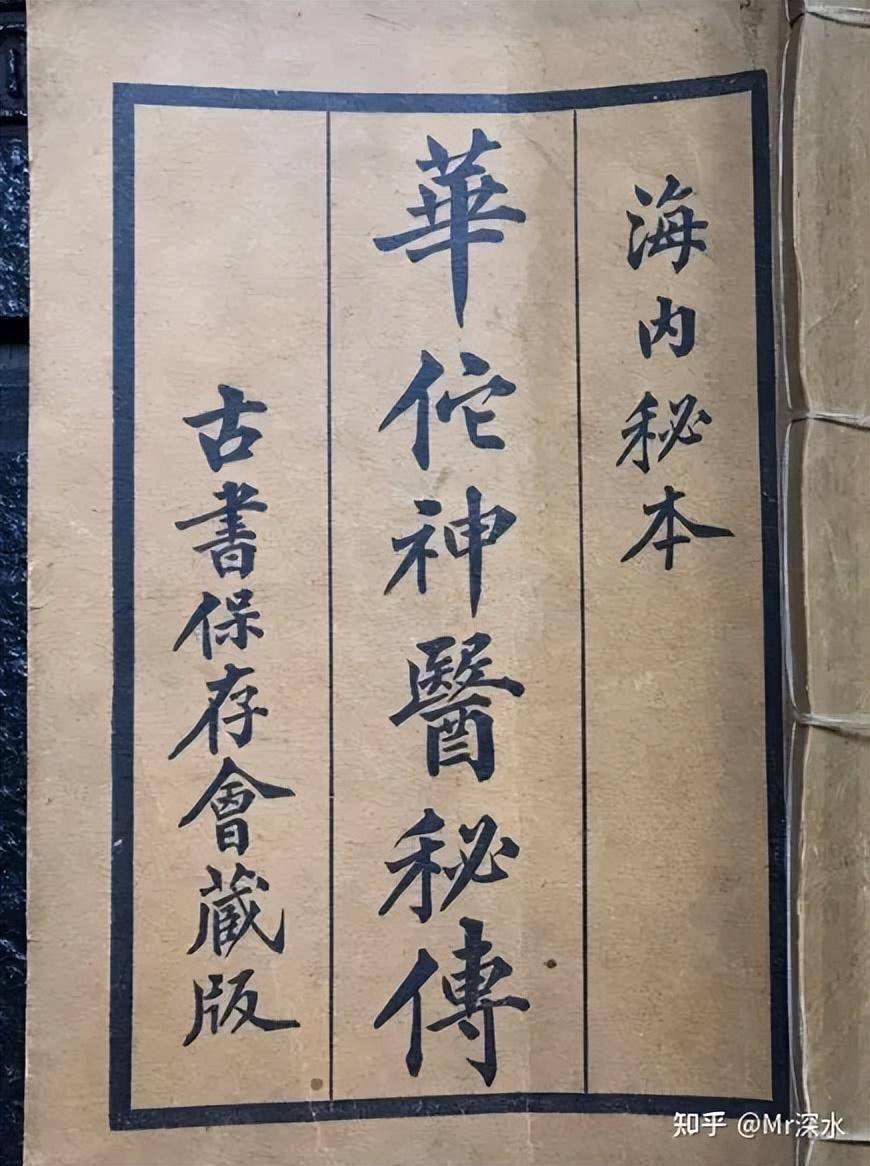 海内秘本
華佗神醫秘傳
古書保存會藏版
知乎 @Mr深水